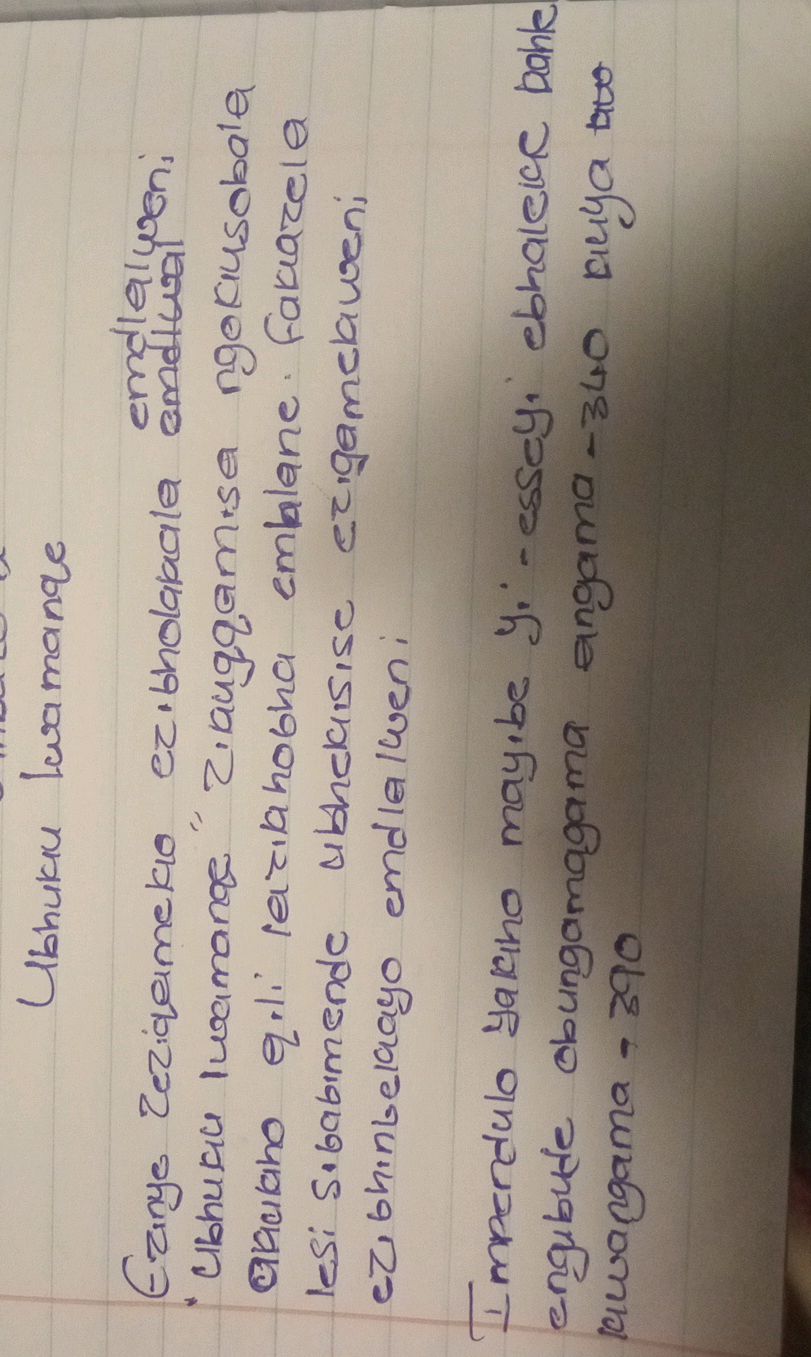 Ubhuku lwamanqe
emdlalweni
Ezinye zeziqameko ezibholakala emdlwal
"Ubhuku lwamanqe" zikugqamisa ngokusobala
akukho qili lazikhotha emhlane. fakazela
lesi sibabimende ubhekisise ezigamekweni
ezibhinbekayo emdlalweni
Impendulo yakho mayibe yi-esseyi ebhalekk bahle
engibude obungamagama angama-340 kuya
kwangama-390